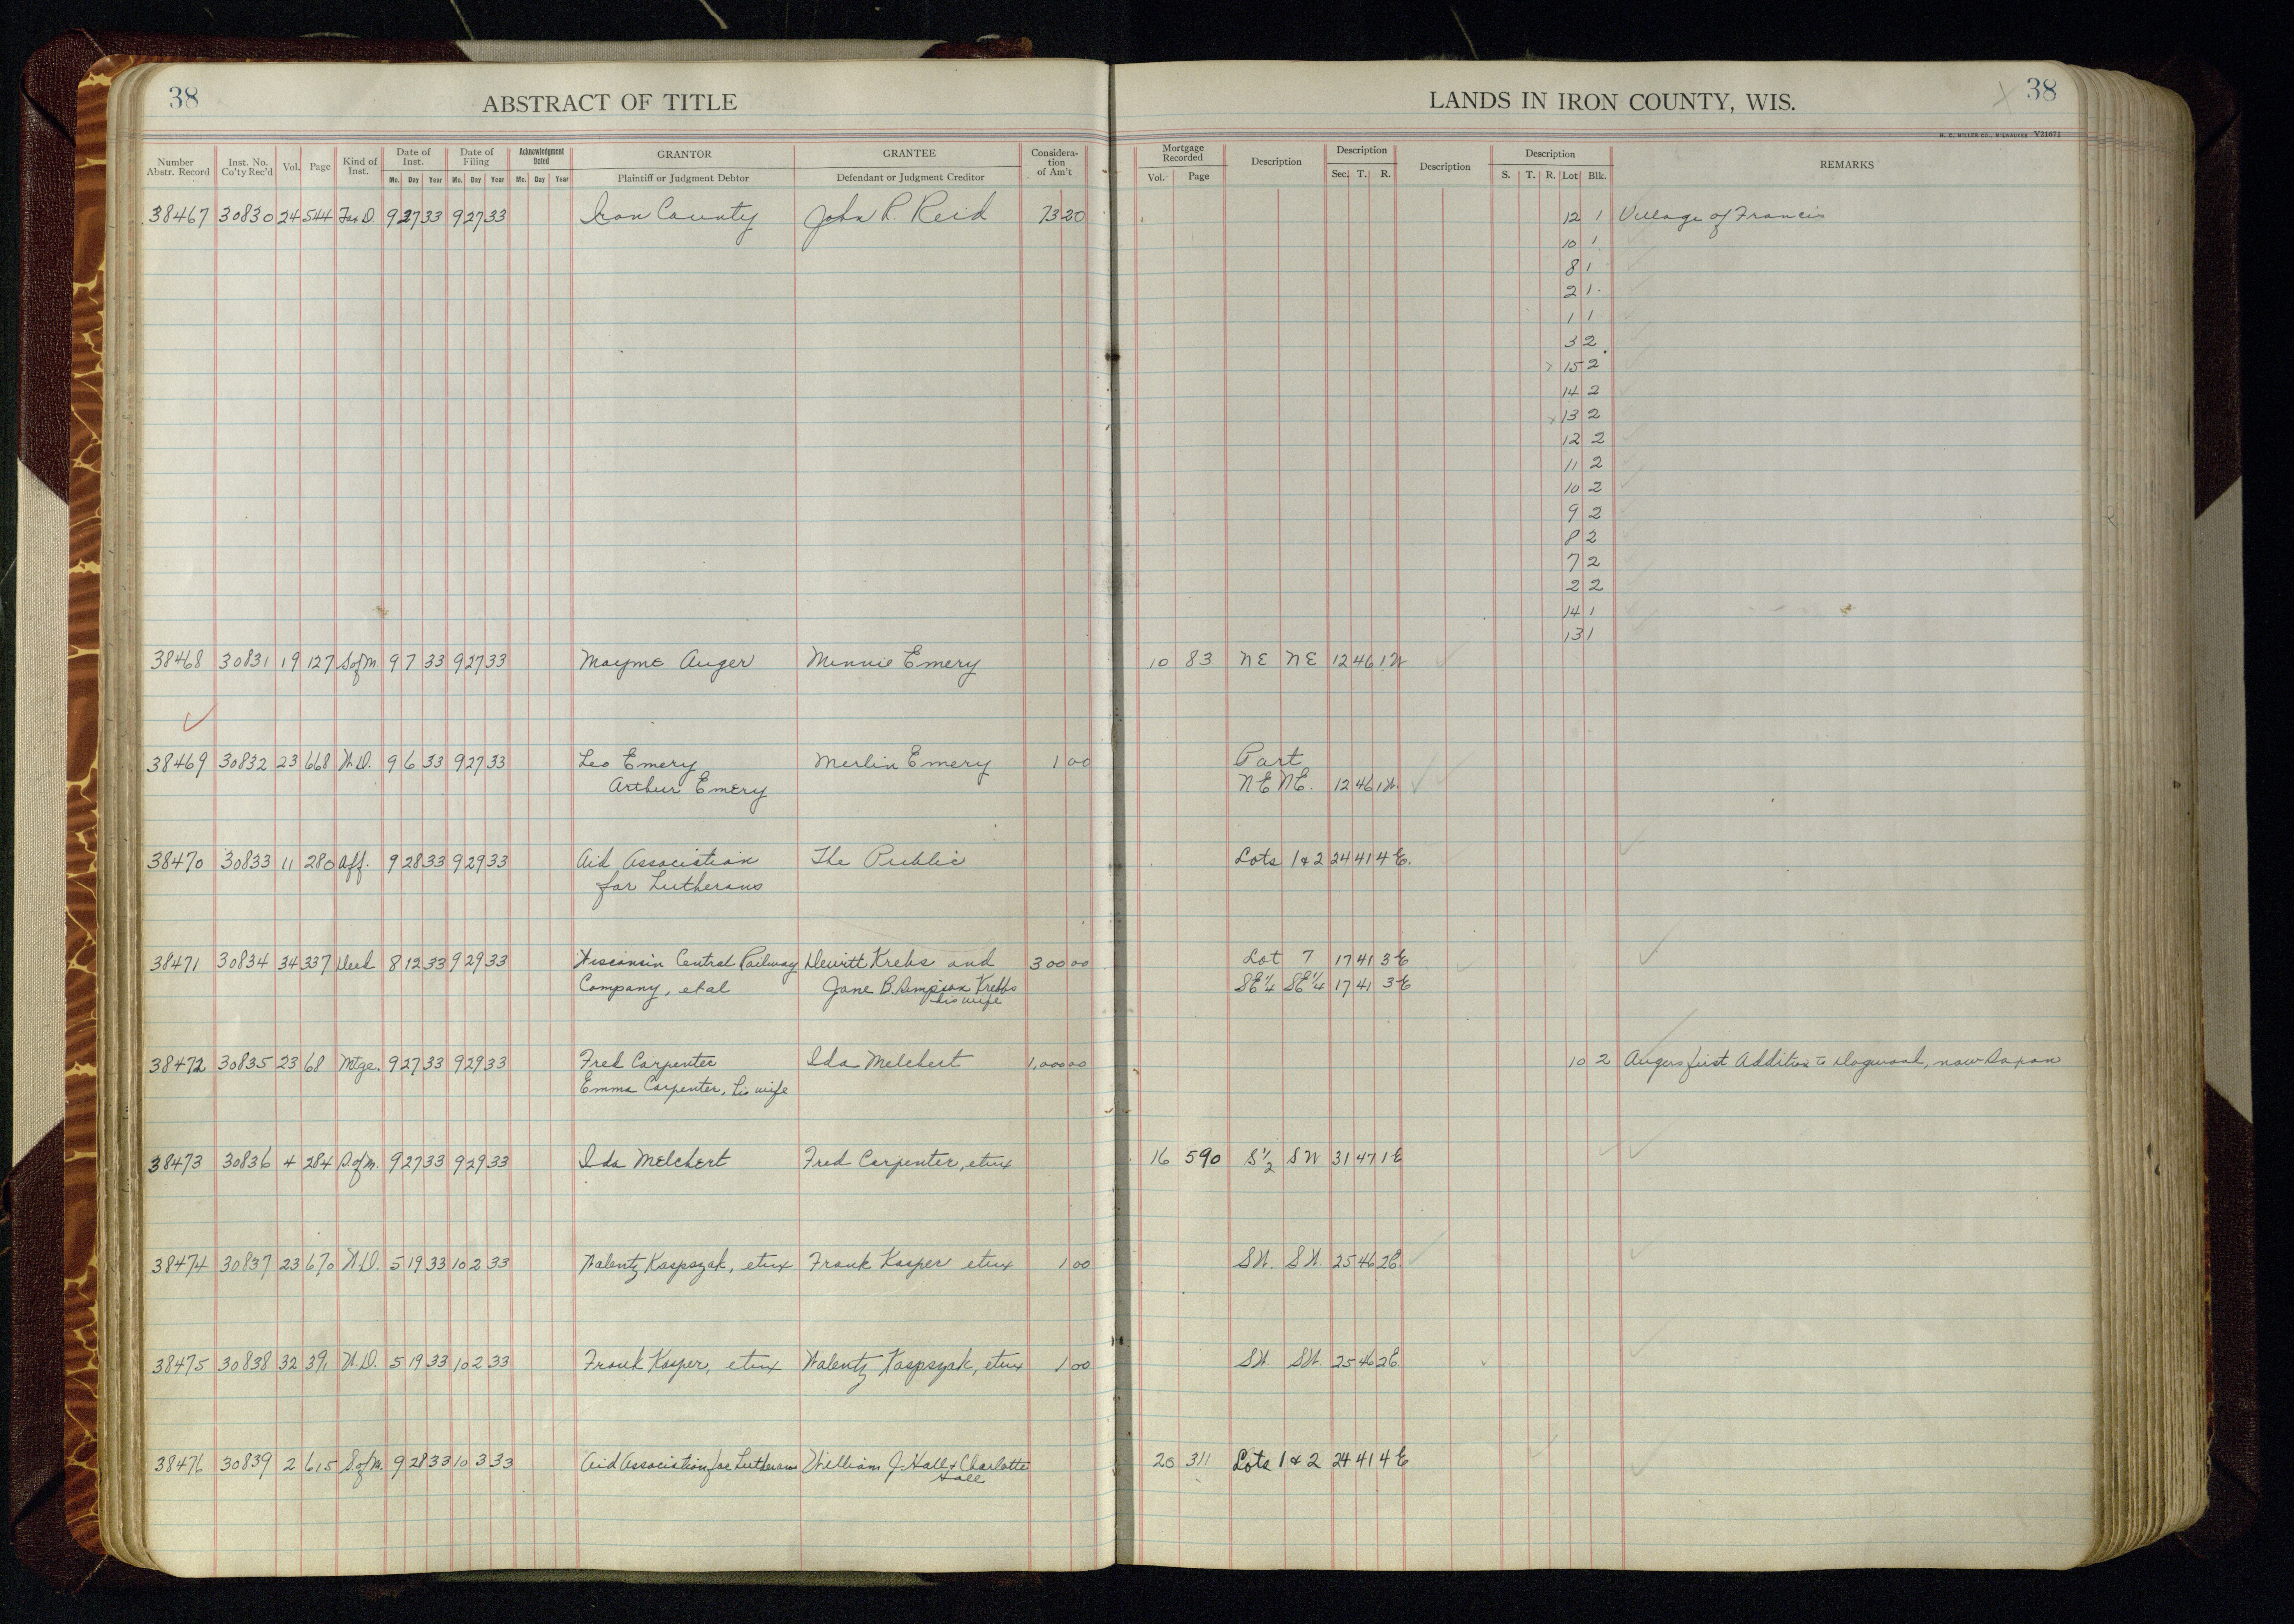 38
ABSTRACT OF TITLE
Number Abstr. Record Inst. No. Co'ty Rec'd Vol. Page Kind of Inst. Date of Inst. Mo. Day Year Date of Filing Mo. Day Year Acknowledgment Dated Mo. Day Year GRANTOR Plaintiff or Judgment Debtor GRANTEE Defendant or Judgment Creditor Consideration of Am't
38467 30830 24 544 Tax D. 9 27 33 9 27 33 Iron County John R. Reid 73 20
38468 30831 19 127 S of M. 9 7 33 9 27 33 Mayme Auger Minnie Emery
38469 30832 23 668 W.D. 9 6 33 9 27 33 Leo Emery Merlin Emery 1 00
Arthur Emery
38470 30833 11 280 Aff. 9 28 33 9 29 33 Aid Association The Public
for Lutherans
38471 30834 34 337 Deed 8 12 33 9 29 33 Wisconsin Central Railway Dewitt Krebs and 300 00
Company, et al Jane B. Simpson Krebbs
his wife
38472 30835 23 68 Mtge. 9 27 33 9 29 33 Fred Carpenter Ida Melchert 1,000 00
Emma Carpenter, his wife
38473 30836 4 284 S. of M. 9 27 33 9 29 33 Ida Melchert Fred Carpenter, et ux
38474 30837 23 670 W.D. 5 19 33 10 2 33 Walentz Kaspszak, et ux Frank Kasper et ux 1 00
38475 30838 32 391 W.D. 5 19 33 10 2 33 Frank Kasper, et ux Walentz Kaspszak, et ux 1 00
38476 30839 2 615 S. of M. 9 28 33 10 3 33 Aid Association for Lutherans William J. Hall & Charlotte
Hall
LANDS IN IRON COUNTY, WIS.
38
H. C. MILLER CO., MILWAUKEE Y21671
Mortgage Recorded Vol. Page Description Description Sec. T. R. Description Description S. T. R. Lot Blk. REMARKS
12 1 Village of Francis
10 1
8 1
2 1
1 1
3 2
15 2
14 2
13 2
12 2
11 2
10 2
9 2
8 2
7 2
2 2
14 1
13 1
10 83 NE NE 12 46 1W
Part
NE NE. 12 46 1W.
Lots 1 & 2 24 41 4 E.
Lot 7 17 41 3 E
SE¼ SE¼ 17 41 3 E
10 2 Augers first Addition to Dogwood, now Saxon
16 590 S½ SW 31 47 1 E
SW. SW. 25 46 2E.
SW. SW. 25 46 2E.
20 311 Lots 1 & 2 24 41 4 E